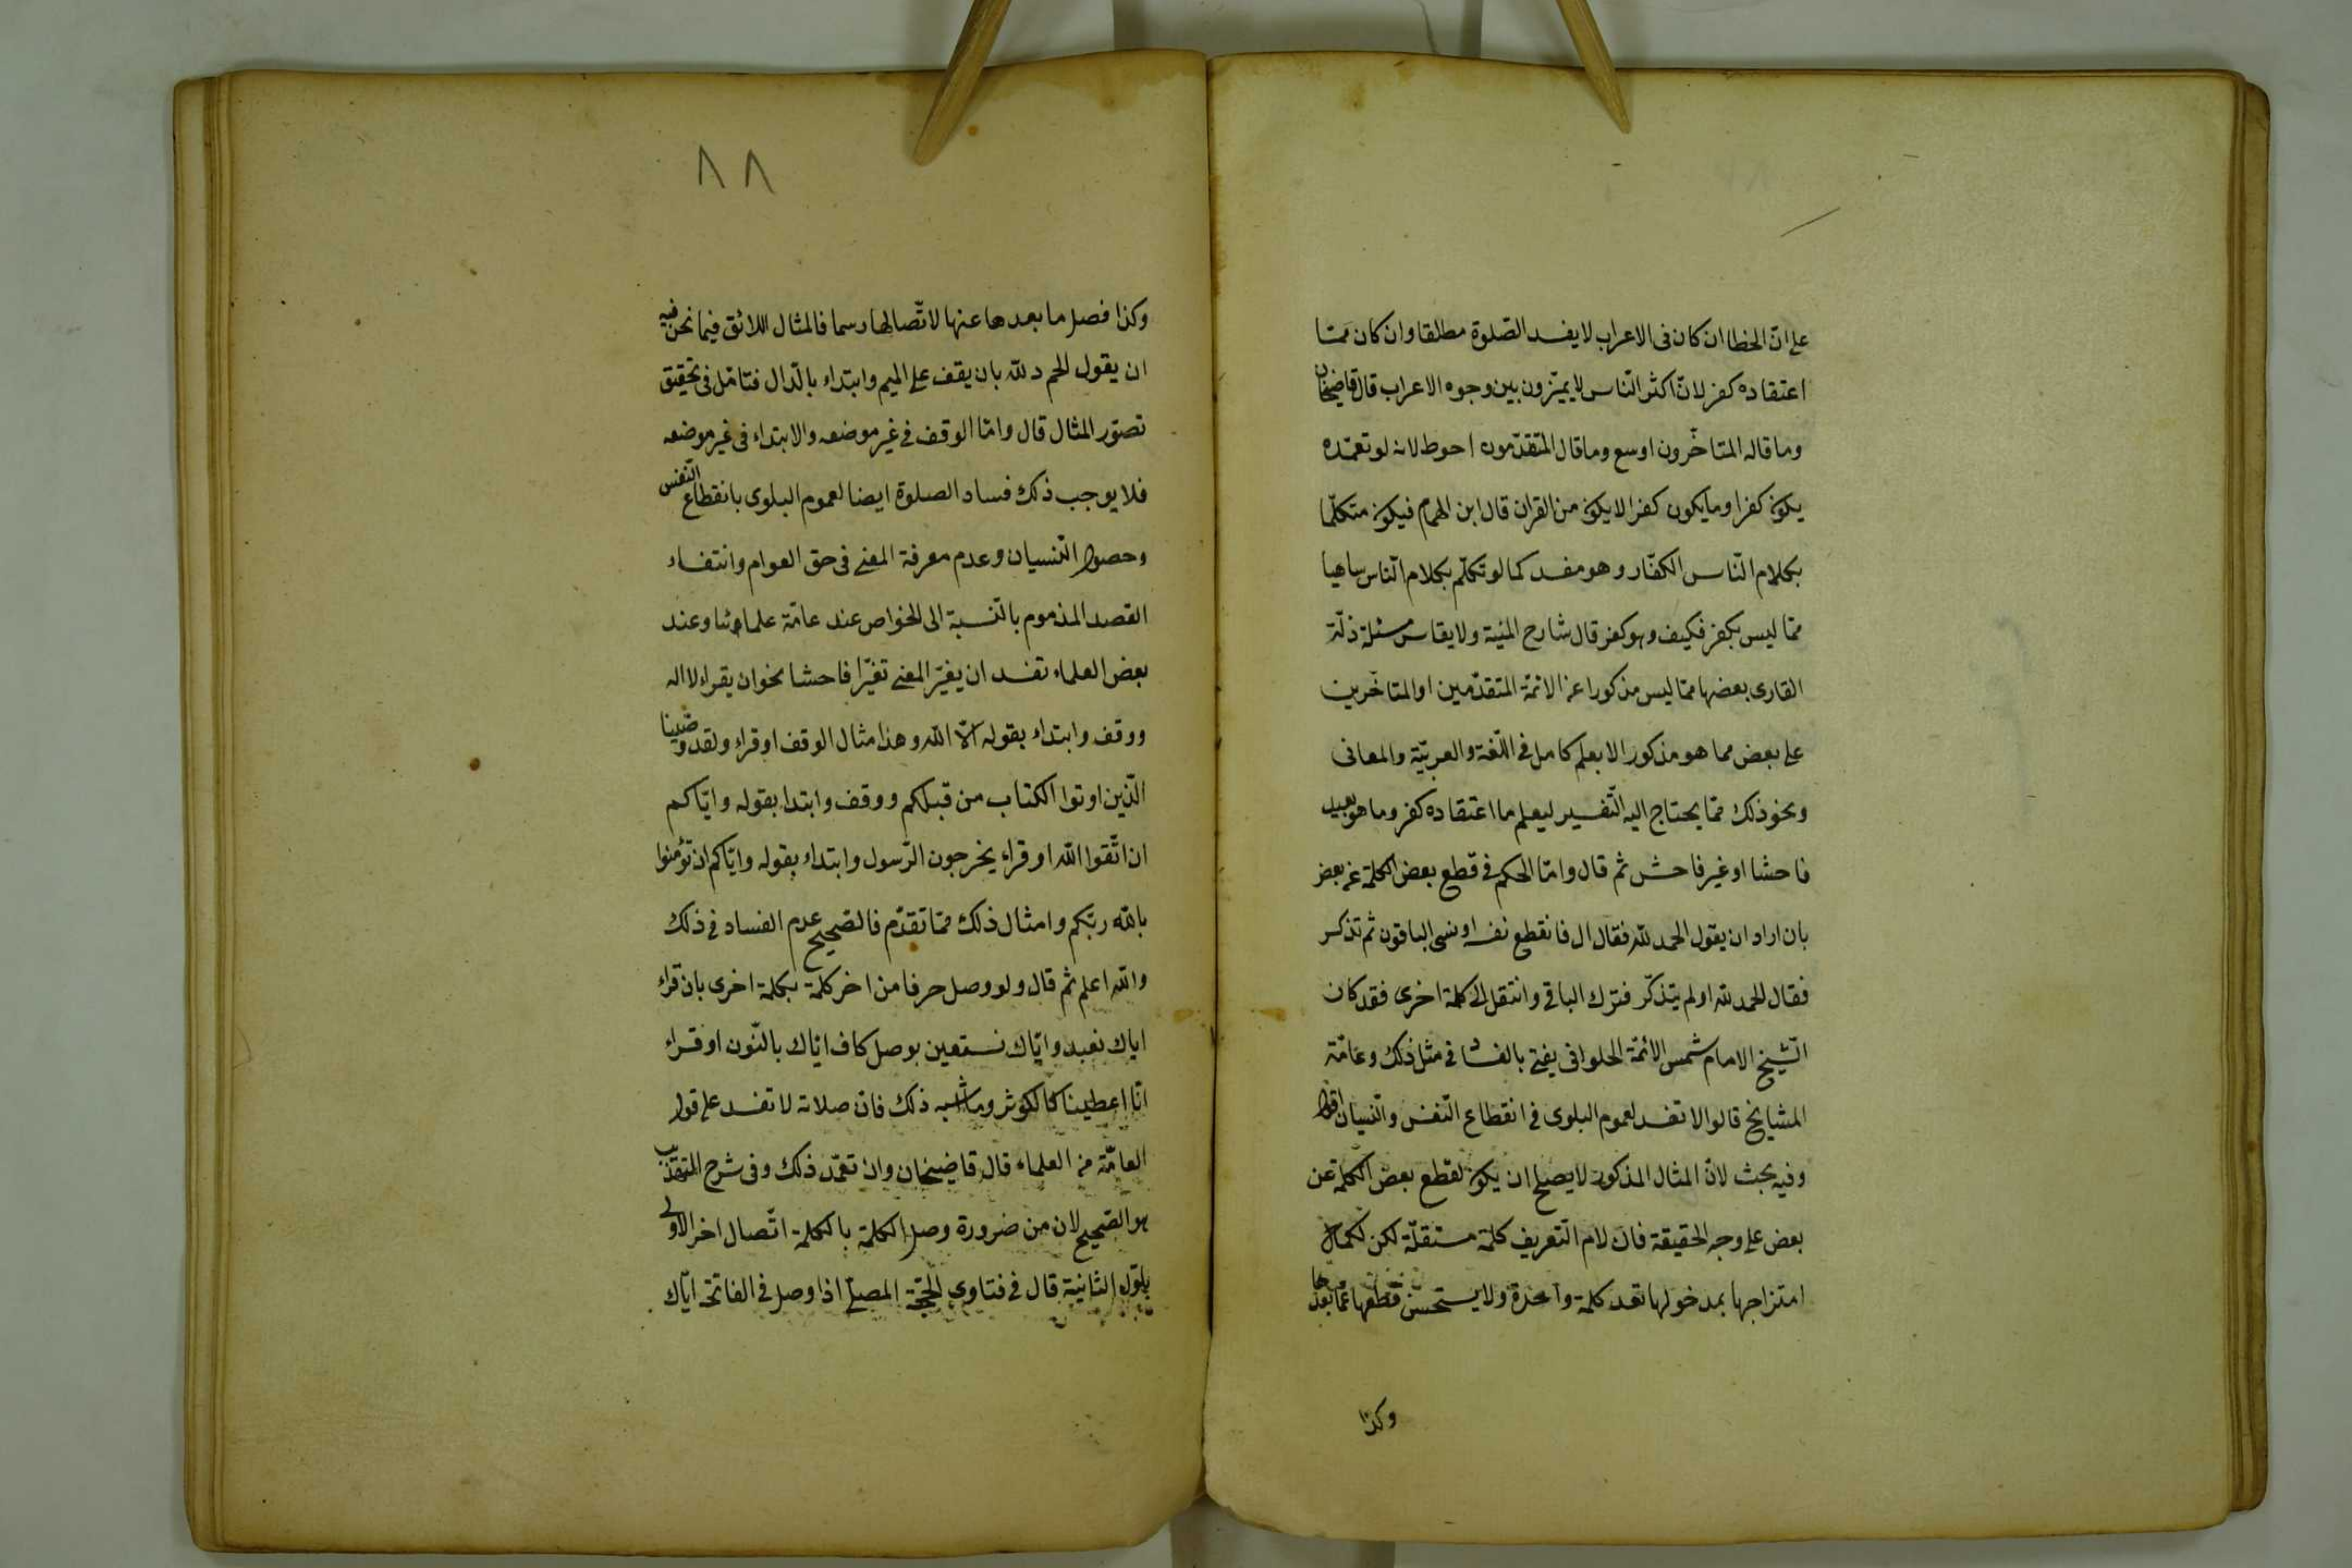 على انّ الخطا ان كان فى الاعراب لا يفسد الصّلوة مطلقا وان كان ممّا
اعتقاده كفر لانّ اكثر النّاس لا يميّزون بين وجوه الاعراب قال قاضيخان
وما قاله المتاخّرون اوسع وما قال المتقدّمون احوط لانه لو تعمّده
يكون كفرا وما يكون كفرا لا يكون من القران قال ابن الهمام فيكون متكلّما
بكلام النّاس الكفّار وهو مفسد كما لو تكلّم بكلام النّاس ساهيا
ممّا ليس بكفر فكيف وهو كفر قال شارح المنية ولا يقاس مسئلة زلّة
القارى بعضها ممّا ليس مذكورا عن الائمّة المتقدّمين او المتاخّرين
على بعض مما هو مذكور الا بعلم كامل فى اللّغة والعربيّة والمعانى
ونحو ذلك ممّا يحتاج اليه التّفسير ليعلم ما اعتقاده كفر وما هو بعيد
فاحشا او غير فاحش ثم قال وامّا الحكم فى قطع بعض الكلمة عن بعض
بان اراد ان يقول الحمد لله فقال ال فانقطع نفسه او نسى الباقون ثم تذكر
فقال الحمد لله او لم يتذكّر فترك الباقى وانتقل الى كلمة اخرى فقد كان
الشّيخ الامام شمس الائمّة الحلوانى يفتى بالفساد فى مثل ذلك وعامّة
المشايخ قالوا لا تفسد لعموم البلوى فى انقطاع النّفس والنّسيان اقول
وفيه بحث لانّ المثال المذكور لا يصلح ان يكون لقطع بعض الكلمة عن
بعض على وجه الحقيقة فانّ لام التّعريف كلمة مستقلّة لكن لكمال
امتزاجها بمدخولها تعد كلمة واحدة ولا يستحسن قطعها عمّا بعدها
وكذا
٨٨
وكذا فصل ما بعدها عنها لاتّصالها رسما فالمثال اللائق فيما نحن فيه
ان يقول الحم د لله بان يقف على الميم وابتداء بالدّال فتامّل فى تحقيق
تصوّر المثال قال وامّا الوقف فى غير موضعه والابتداء فى غير موضعه
فلا يوجب ذلك فساد الصلوة ايضا لعموم البلوى بانقطاع النّفس
وحصول النّسيان وعدم معرفة المعنى فى حق العوام وانتفاء
القصد المذموم بالنّسبة الى الخواص عند عامّة علمائنا وعند
بعض العلماء تفسد ان يغيّر المعنى تغيّرا فاحشا نحو ان يقراء لا اله
ووقف وابتداء بقوله الّا اللّه وهذا مثال الوقف او قراء ولقد وصّينا
الّذين اوتوا الكتاب من قبلكم ووقف وابتدا بقوله وايّاكم
ان اتّقوا اللّه او قراء يخرجون الرّسول وابتداء بقوله وايّاكم ان تؤمنوا
باللّه ربّكم وامثال ذلك ممّا تقدّم فالصّحيح عدم الفساد فى ذلك
واللّه اعلم ثم قال ولو وصل حرفا من اخر كلمة بكلمة اخرى بان قراء
اياك نعبد وايّاك نستعين بوصل كاف ايّاك بالنّون او قراء
انّا اعطيناك الكوثر وما شبه ذلك فانّ صلاته لا تفسد على قول
العامّة من العلماء قال قاضيخان وان تعمّد ذلك وفى شرح
هو الصّحيح لان من ضرورة وصل الكلمة بالكلمة اتّصال اخر الاولى
الثانية قال فى فتاوى الحجّة المصلّى اذا وصل فى الفاتحة ايّاك